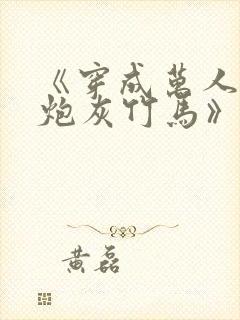 《穿成萬人
炮灰竹馬》
黄磊